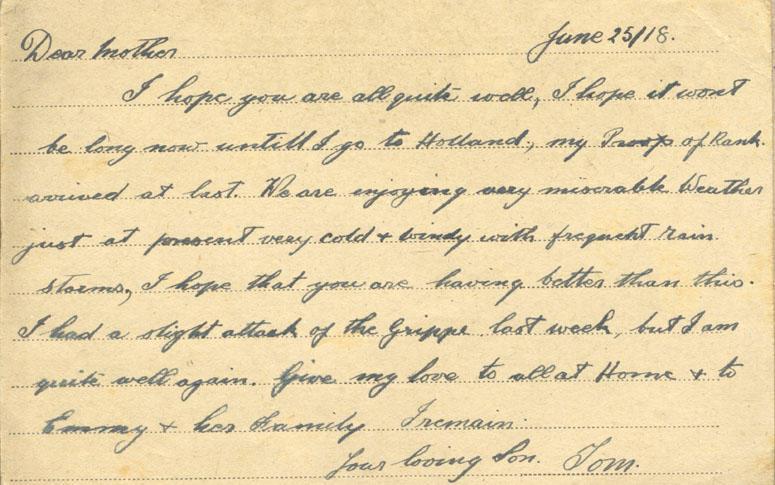 June 25/18.
Dear Mother
I hope you are all quite well, I hope it wont
be long now untill I go to Holland, my Proof of Rank.
arrived at last. We are enjoying very miserable Weather
just at present very cold & windy with frequent rain
storms, I hope that you are having better than this.
I had a slight attack of the Grippe last week, but I am
quite well again. Give my love to all at Home & to
Emmy & her Family I remain.
Your loving Son. Tom.